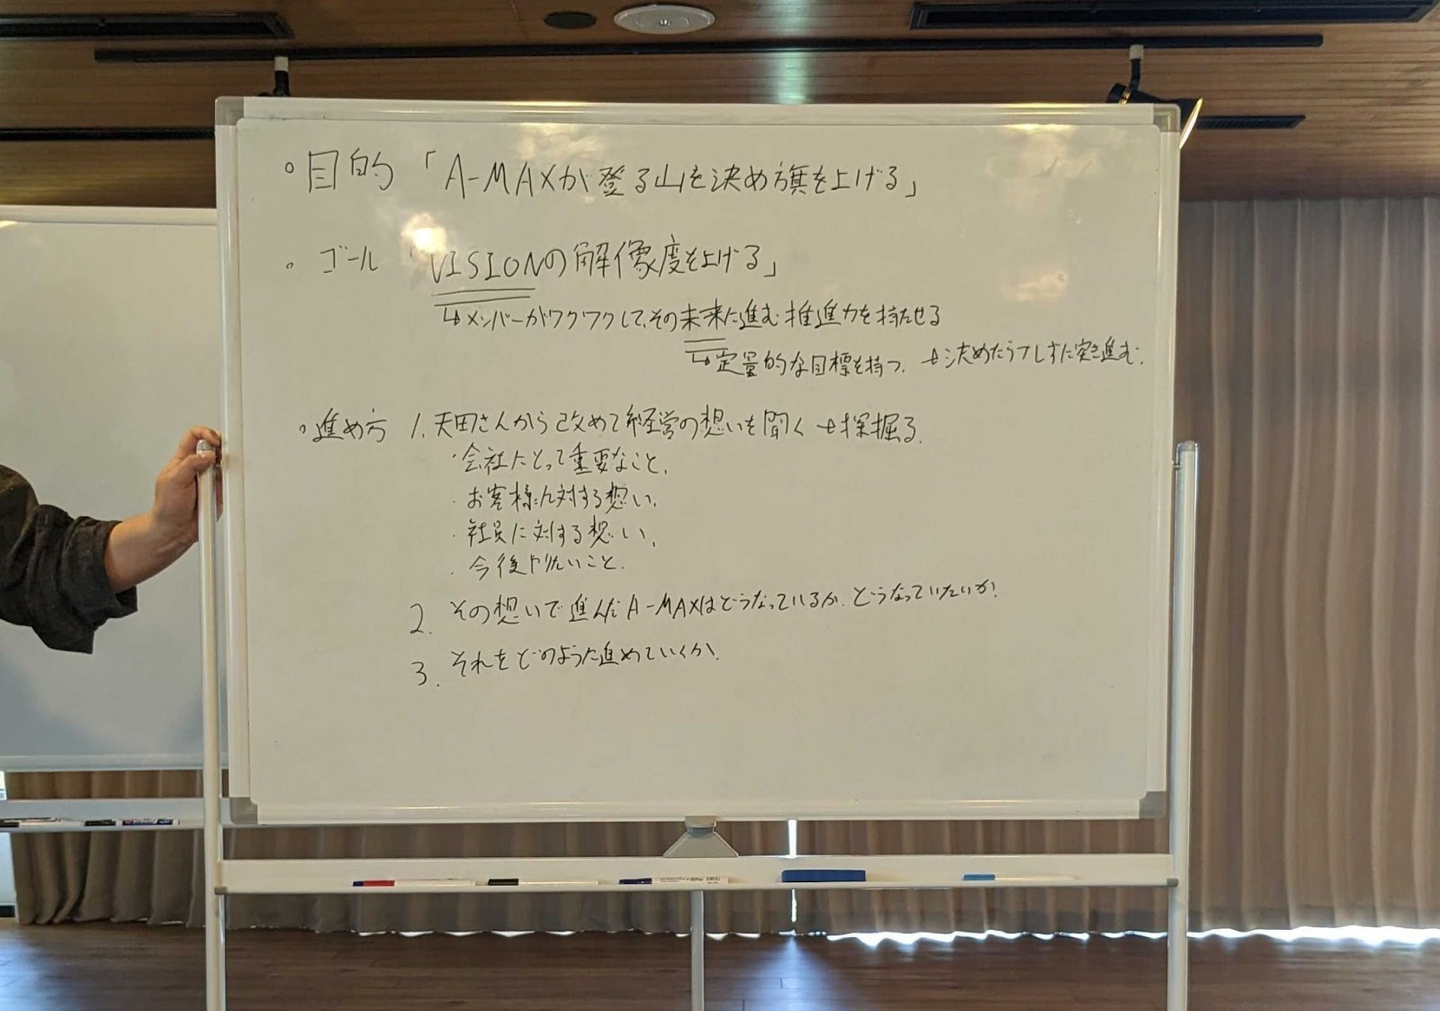 ・目的「A-MAXが登る山を決め旗を上げる」
・ゴール「VISIONの解像度を上げる」
↳メンバーがワクワクして、その未来に進む推進力を持たせる
↳定量的な目標を持つ。 →決めたらブレずに突き進む。
・進め方 1. 天田さんから改めて経営の想いを聞く →深掘る。
・会社にとって重要なこと。
・お客様に対する想い。
・社員に対する想い。
・今後やりたいこと。
2. その想いで進んだA-MAXはどうなっているか。どうなっていたいか。
3. それをどのように進めていくか。